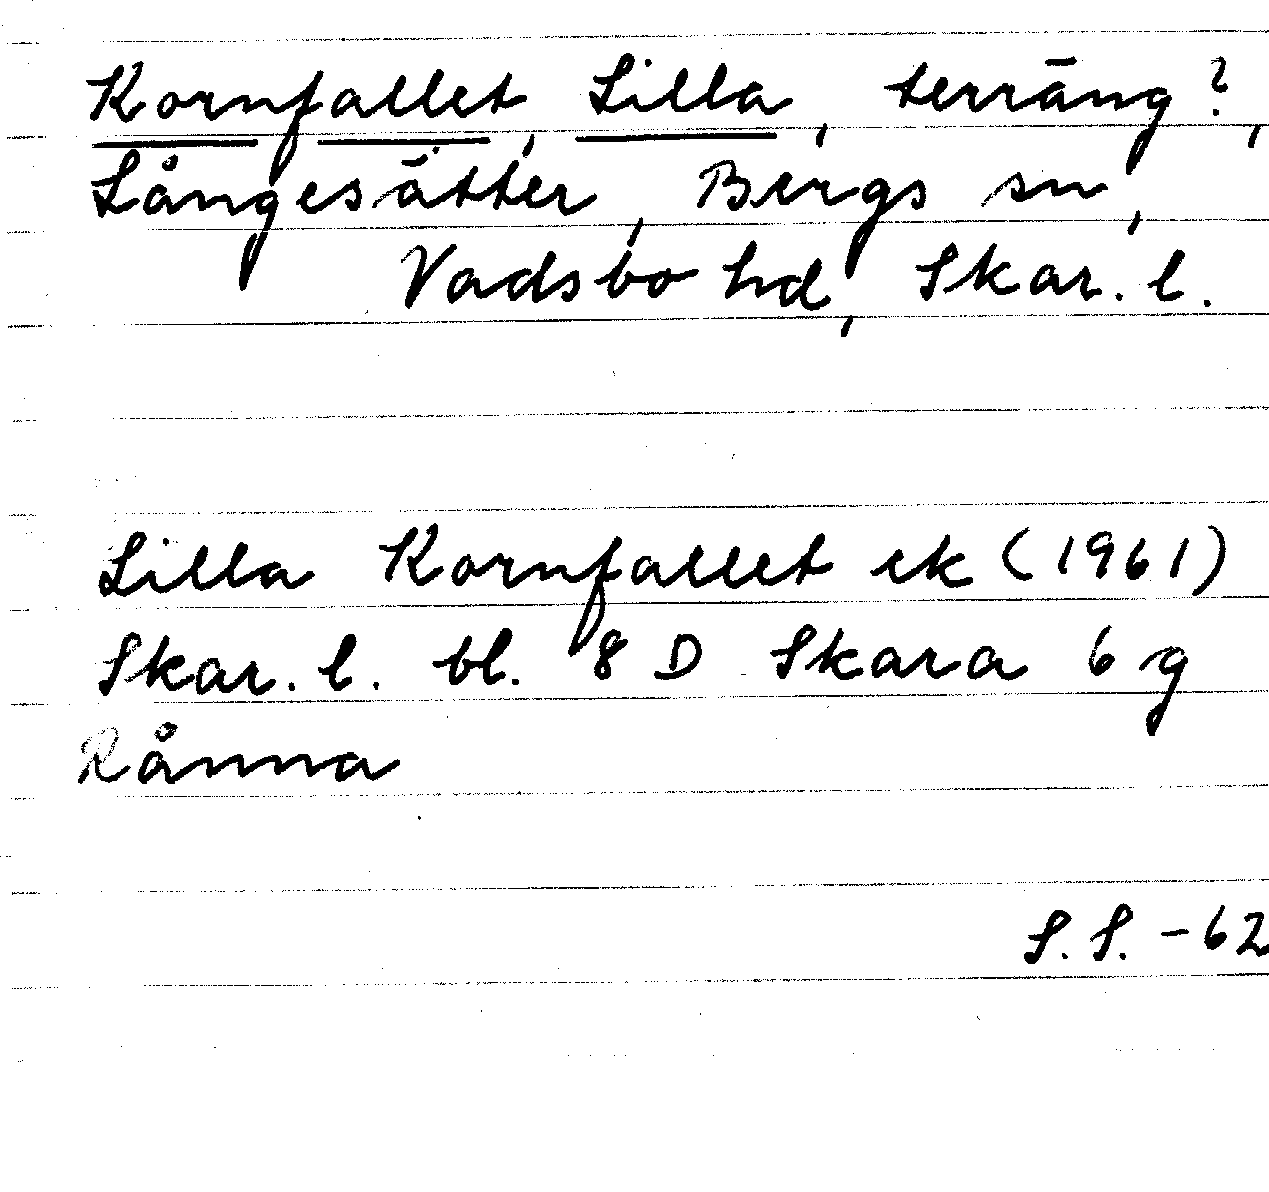 Kornfallet, Lilla, terräng?,
Långesätter, Bergs sn,
Vadsbo hd, Skar. l.
Lilla Kornfallet ek (1961)
Skar. l. bl. 8 D Skara 6 g
Rånna
S. S. -62